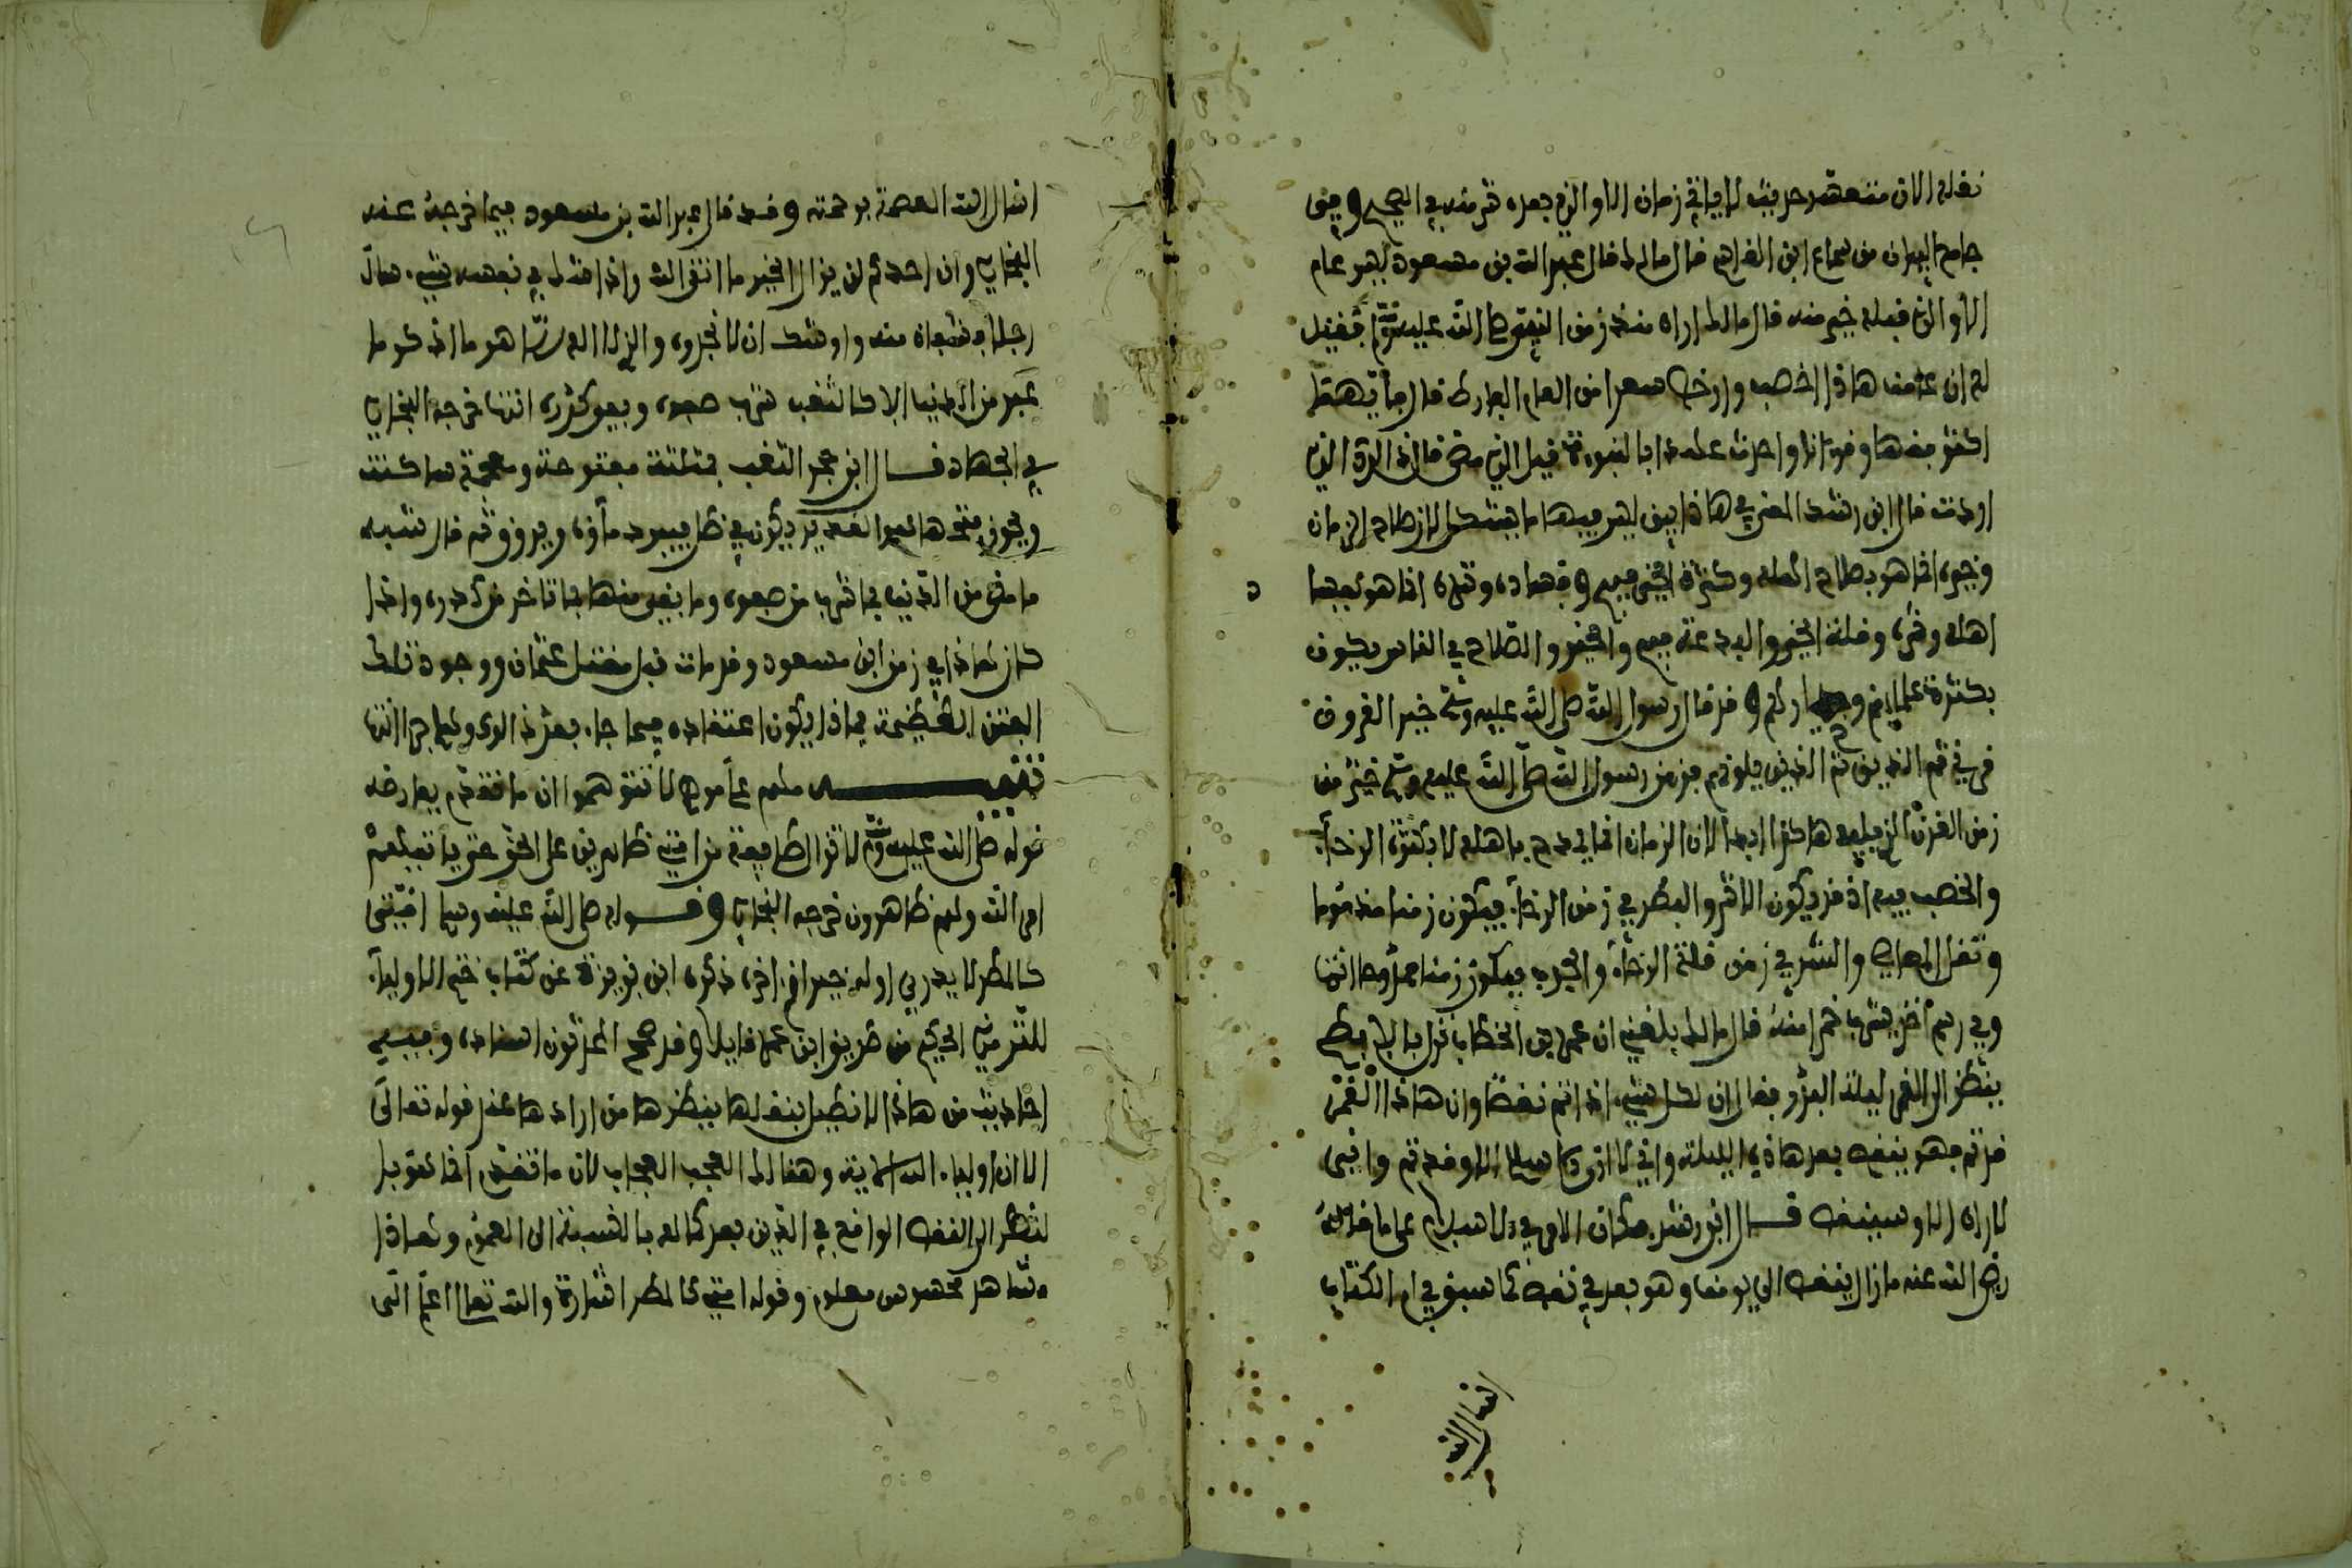 نقله الان منتعشه حديث لا ياتي زمان الا والذي بعده شر منه في الصحيح وفي
جامع البيان من سماع ابن القاسم قال مالك قال عبد الله بن مسعود ليس عام
الا والذي قبله خير منه قال مالك اراه منذ زمن النبي صلى الله عليه وسلم فقيل
له ان عامنا هاذا اخصب وارخص سعرا من العام الفارط قال
اكثر فقها وقرءانا واحدث عهدا بالنبوءة قيل الذي مضى قال ذلك الذي
اردت قال ابن رشد المعنى في هاذا بين ليس فيها ما يشكل لان صلاح الزمان
وخيره انما هو بصلاح اهله وكثرة الخير فيهم وفساده وشره انما هو بفساد
اهله وشره وقلة الخير والبدعة فيهم والخير والصلاح في الناس يكون
بكثرة علمائهم وخيارهم وقد قال رسول الله صلى الله عليه وسلم خير القرون
قرني ثم الذين ثم الذين يلونهم فزمن رسول الله صلى الله عليه وسلم خير من
زمن القرن الذي يليه هاكذا ابدا لان الزمان انما يمدح باهله لا بكثرة الرخاء
والخصب فيه اذ قد يكون الاشر والبطر في زمن الرخاء فيكون زمنا مذموما
وتقل المعاصي والشر في زمن قلة الرخاء والجدب فيكون زمنا ممدوحا انتها
وفي رسم أخر يشرب خمرا منه قال مالك بلغني ان عمر بن الخطاب نزل بالابطح
ينظر الى القمر ليلة البدر فقال ان لكل شيء اذا تم نقصا وان هاذا القمر
قد تم فهو ينقص بعد هاذه الليلة واني لا ارى الاسلام الا وقد تم واني
لا اراه الا وسينقص قال ابن رشد فكان الامر في الاسلام على ما قاله
رضي الله عنه ما زال ينقص الى يومنا وهو بعد في نقص كما سبق في ام الكتاب
انسال الله
انسال الله العصمة برحمته وقد قال عبد الله بن مسعود فيما خرجه عنه
البخاري وان احدكم لن يزال بخير ما اتقى الله واذا شك في نفسه شيء سال
رجلا فشفاه منه واوشك ان لا تجدوه والذي لا اله الا هو ما اذكر ما
غبر من الدنيا الا كالثغب شرب صفوه وبقي كدره انتها خرجه البخاري
في الجهاد قال ابن حجر الثغب بمثلثة مفتوحة ومعجمة ساكنة
ويجوز فتحها الغدير يكون في ظل فيبرد ماؤه ويروق ثم قال شبه
ما مضى من الدنيا بما شرب من صفوه وما بقي منها بما تاخر من كدره واذا
كان هاذا في زمن ابن مسعود وقد مات قبل مقتل عثمان ووجود تلك
الفتن العظيمة فماذا يكون اعتقاده فيما جاء بعد ذلك وهلم جرا انتها
تنبيه ملم عامر لا تتوهموا ان ما تقدم يعارضه
قوله صلى الله عليه وسلم لا تزال طايفة من امتي ظاهرين على الحق حتى ياتيهم
امر الله وهم ظاهرون خرجه البخاري وقوله صلى الله عليه وسلم امتي
كالمطر لا يدرى اوله خير ام اخره ذكره ابن بزيزة عن كتاب ختم الاولياء
للترمذي الحكيم من طريق ابن عمر قايلا وقد صحح المحدثون اسناده وفيه
احاديث من هاذا لا نطيل بنقلها ينظرها من ارادها عند قوله تعالى
الا ان اولياء الله الاية وهنالك العجب العجاب لان ما تقدم انما هو
لنظر الى النقص الواقع في الدين بعد كماله بالنسبة الى العموم وهاذا
مشاهد محسوس معلوم وقوله امتي كالمطر اشارة والله تعالى اعلم الى